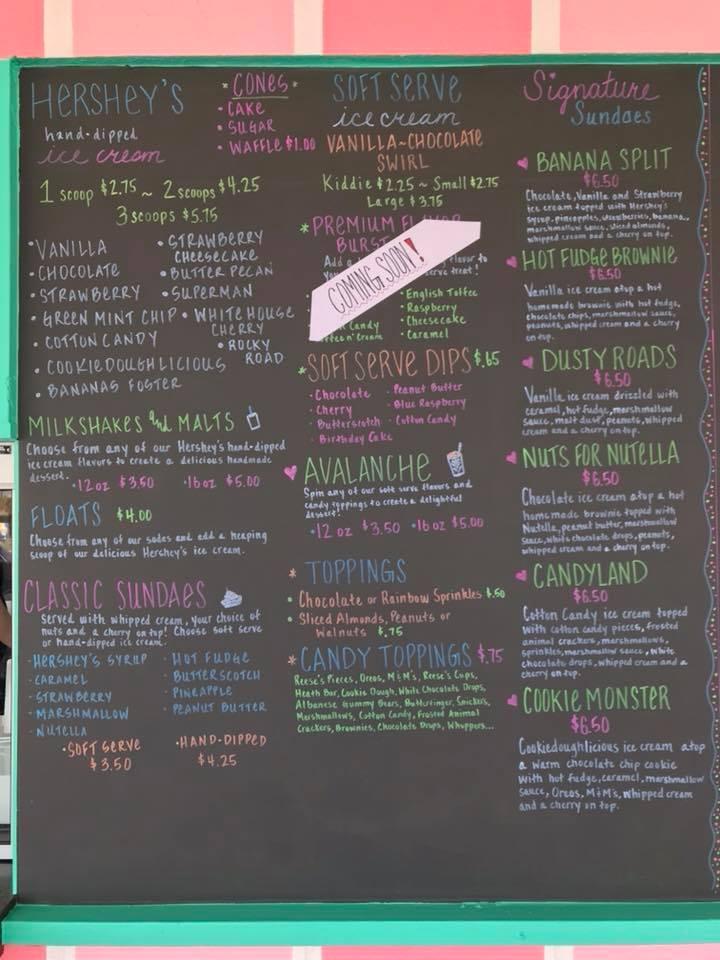 HERSHEY'S
hand-dipped
ice cream
• CONES •
• CAKE
• SUGAR
• WAFFLE $1.00
1 scoop $2.75 ~ 2 scoops $4.25
3 scoops $5.75
• VANILLA
• CHOCOLATE
• STRAWBERRY
• GREEN MINT CHIP
• COTTON CANDY
• COOKIEDOUGHLICIOUS
• BANANAS FOSTER
• STRAWBERRY
CHEESECAKE
• BUTTER PECAN
• SUPERMAN
• WHITE HOUSE
CHERRY
• ROCKY
ROAD
MILKSHAKES and MALTS
Choose from any of our Hershey's hand-dipped
ice cream flavors to create a delicious handmade
dessert.
• 12 oz $3.50 • 16 oz $5.00
FLOATS $4.00
Choose from any of our sodas and add a heaping
scoop of our delicious Hershey's ice cream.
CLASSIC SUNDAES
Served with whipped cream, your choice of
nuts and a cherry on top! Choose soft serve
or hand-dipped ice cream.
• HERSHEY'S SYRUP
• CARAMEL
• STRAWBERRY
• MARSHMALLOW
• NUTELLA
• HOT FUDGE
• BUTTERSCOTCH
• PINEAPPLE
• PEANUT BUTTER
• SOFT SERVE
$3.50
• HAND-DIPPED
$4.25
SOFT SERVE
ice cream
VANILLA ~ CHOCOLATE
SWIRL
Kiddie $2.25 ~ Small $2.75
Large $3.75
* PREMIUM FLAVOR
BURST
Add a flavor to
treat!
COMING SOON!
Candy
• English Toffee
• Raspberry
• Cheesecake
• Caramel
* SOFT SERVE DIPS $.65
• Chocolate
• Cherry
• Butterscotch
• Birthday Cake
• Peanut Butter
• Blue Raspberry
• Cotton Candy
AVALANCHE
Spin any of our soft serve flavors and
candy toppings to create a delightful
dessert!
• 12 oz $3.50 • 16 oz $5.00
* TOPPINGS
• Chocolate or Rainbow Sprinkles $.50
• Sliced Almonds, Peanuts or
Walnuts $.75
* CANDY TOPPINGS $.75
Reese's Pieces, Oreos, M&M's, Reese's Cups,
Heath Bar, Cookie Dough, White Chocolate Drops,
Albanese Gummy Bears, Butterfinger, Snickers,
Marshmallows, Cotton Candy, Frosted Animal
Crackers, Brownies, Chocolate Drops, Whoppers...
Signature
Sundaes
BANANA SPLIT
$6.50
Chocolate, Vanilla and Strawberry
ice cream topped with Hershey's
syrup, pineapples, strawberries, banana,
marshmallow sauce, sliced almonds,
whipped cream and a cherry on top.
HOT FUDGE BROWNIE
$6.50
Vanilla ice cream atop a hot
homemade brownie with hot fudge,
chocolate chips, marshmallow sauce,
peanuts, whipped cream and a cherry
on top.
DUSTY ROADS
$6.50
Vanilla ice cream drizzled with
caramel, hot fudge, marshmallow
sauce, malt dust, peanuts, whipped
cream and a cherry on top.
NUTS FOR NUTELLA
$6.50
Chocolate ice cream atop a hot
homemade brownie topped with
Nutella, peanut butter, marshmallow
sauce, white chocolate drops, peanuts,
whipped cream and a cherry on top.
CANDYLAND
$6.50
Cotton Candy ice cream topped
with cotton candy pieces, frosted
animal crackers, marshmallows,
sprinkles, marshmallow sauce, white
chocolate drops, whipped cream and a
cherry on top.
COOKIE MONSTER
$6.50
Cookiedoughlicious ice cream atop
a warm chocolate chip cookie
with hot fudge, caramel, marshmallow
sauce, Oreos, M&M's, whipped cream
and a cherry on top.